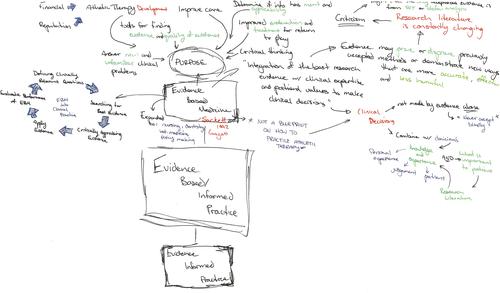 Financial
Reputation
Athletic Therapy Development
Improve care
tools for finding
evidence and quality of evidence
Answer
clinical
problems
PURPOSE
Determine if info has merit and
Improved evaluation and
treatment for return
to play
Critical thinking
"Integration of the best research
evidence w/ clinical expertise
and patient values to make
clinical decisions"
Criticism
Research literature
is constantly changing
Evidence may prove or disprove previously
accepted methods or demonstrate new ways
that are more accurate,
and less harmful
Defining Clinically
Relevant Questions
Searching for
Best Evidence
Critically Appraising
Evidence
Apply
Evidence
Evaluate Performance
of EBM
EBM
into
Clinical
Practice
Evidence
Based
Medicine
Expanded
to nursing, dentistry
policy making
Sackett
NOT A BLUEPRINT
ON HOW TO
PRACTICE ATHLETIC
THERAPY
Clinical
Decisions
not made by evidence alone
Combine w/
Knowledge and
experience
Personal
experience
judgement
patients
AND
what is
important
to patients
Research
Literature
Evidence
Based/
Informed
Practice
Evidence
Informed
Practice